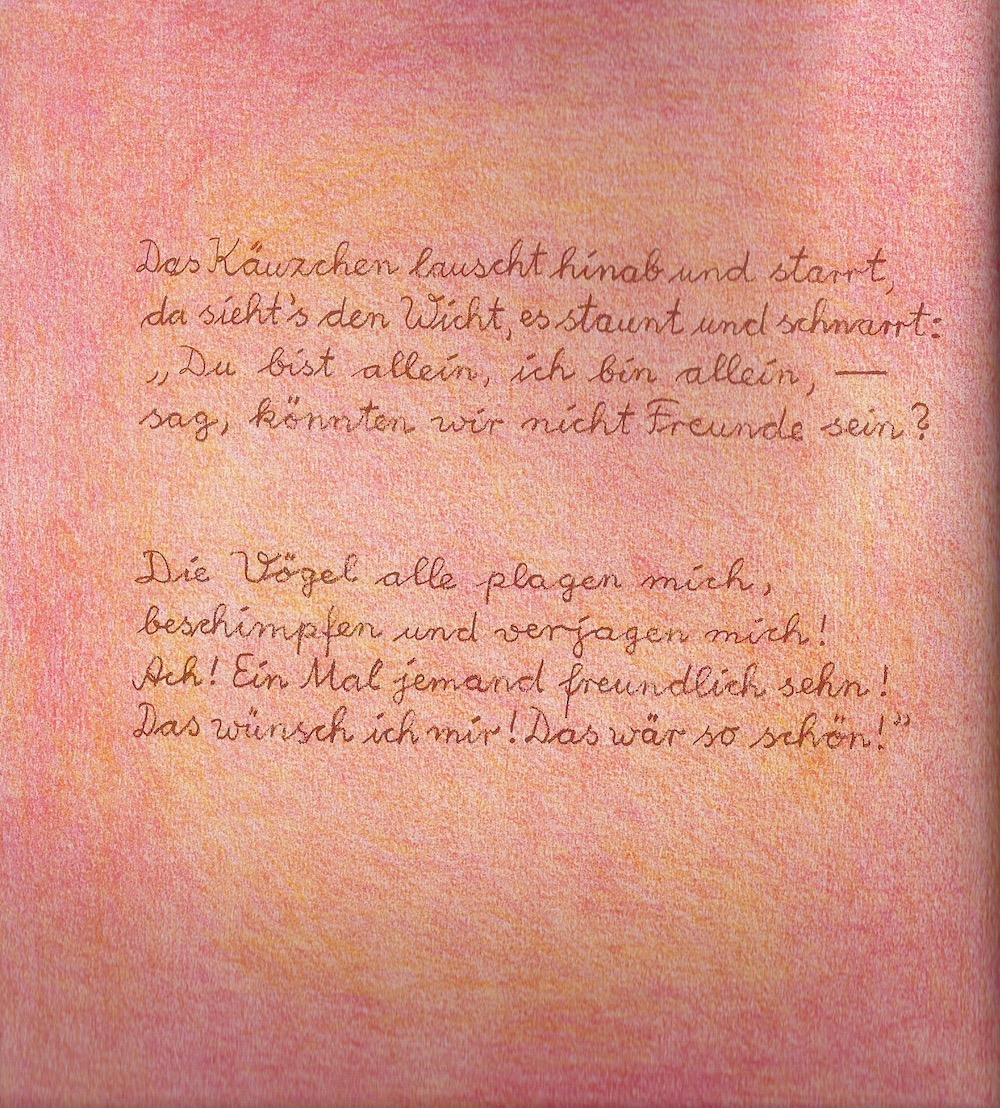 Das Käuzchen lauscht hinab und starrt,
da sieht's den Wicht, es staunt und schnarrt:
„Du bist allein, ich bin allein, —
sag, könnten wir nicht Freunde sein?
Die Vögel alle plagen mich,
beschimpfen und verjagen mich!
Ach! Ein Mal jemand freundlich sehn!
Das wünsch ich mir! Das wär so schön!”